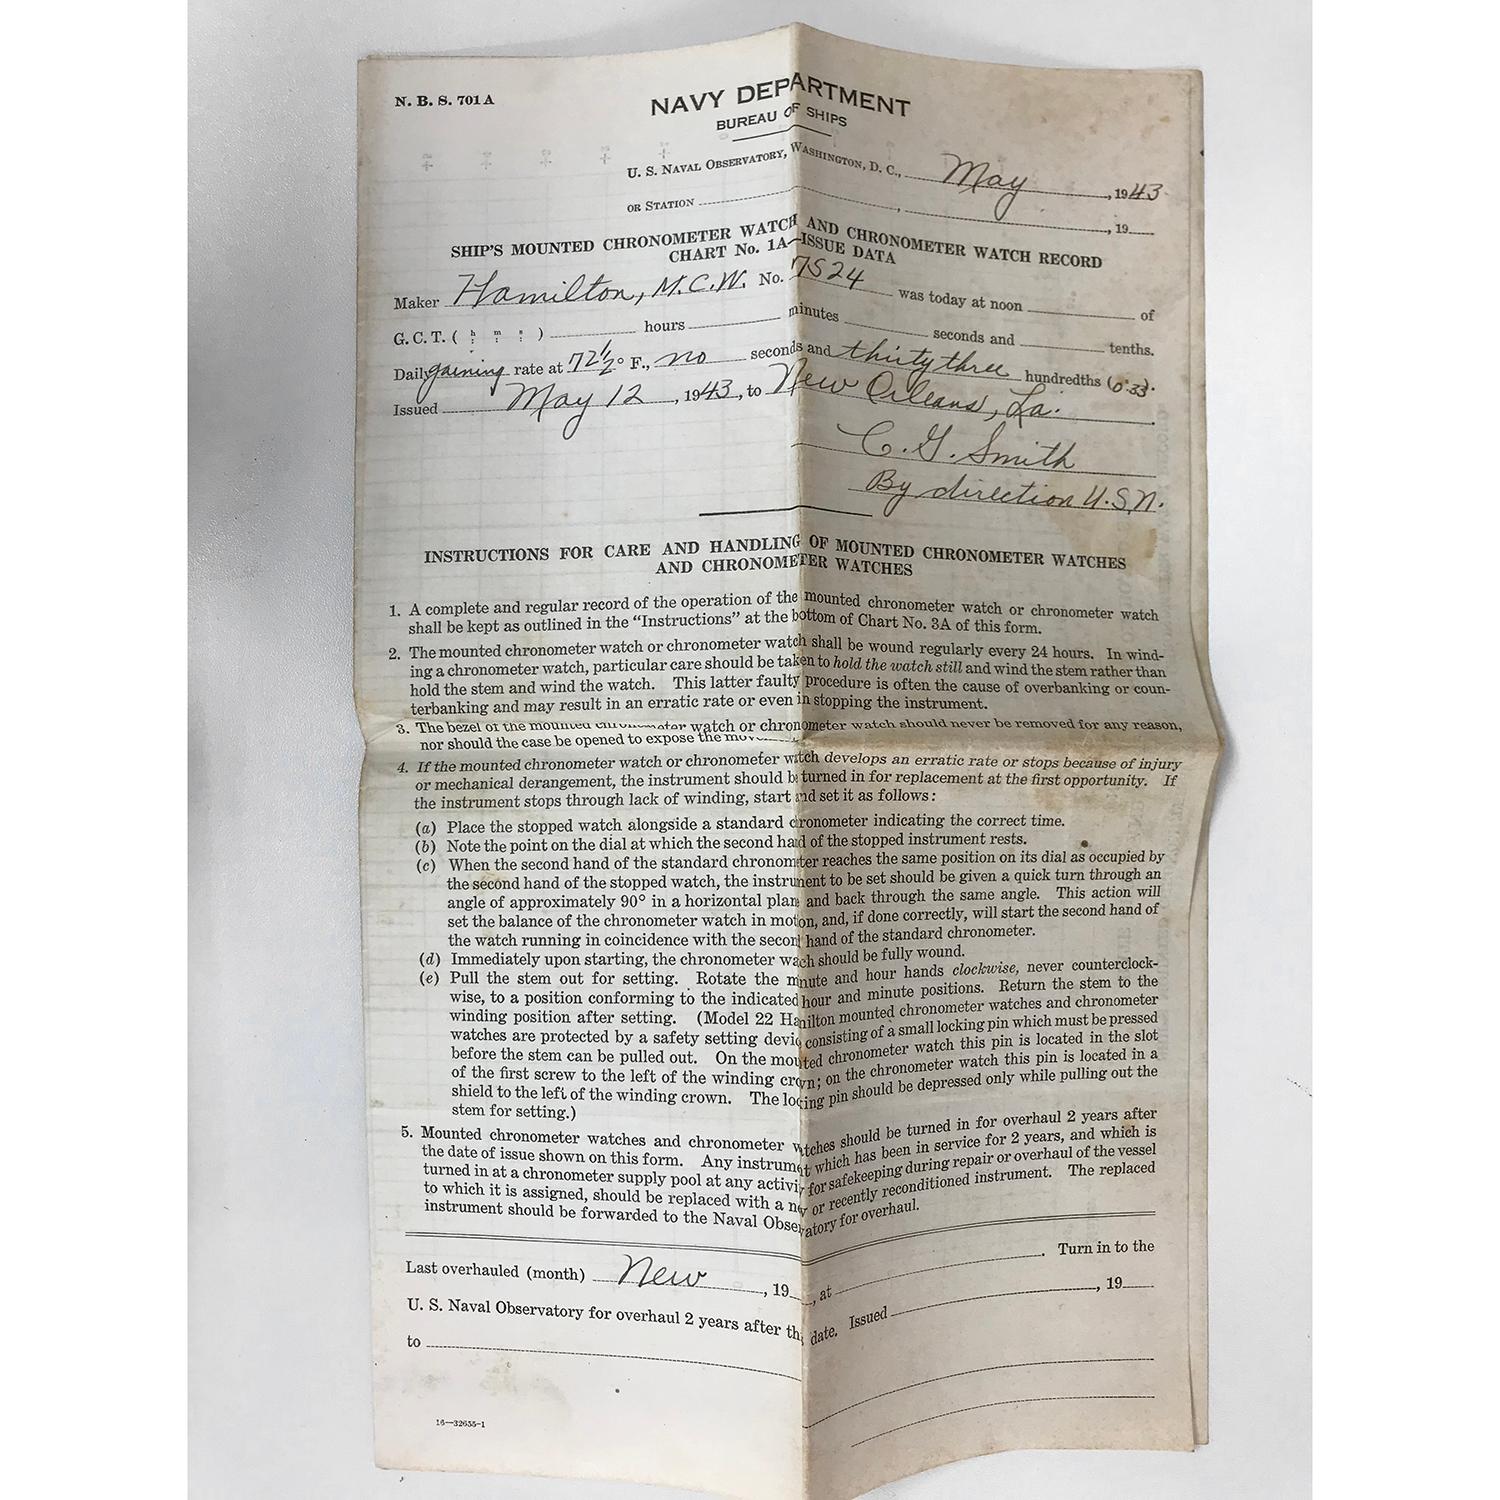 N. B. S. 701 A
NAVY DEPARTMENT
BUREAU OF SHIPS
U. S. NAVAL OBSERVATORY, WASHINGTON, D. C., May, 1943
OR STATION , , 19
SHIP'S MOUNTED CHRONOMETER WATCH AND CHRONOMETER WATCH RECORD
CHART No. 1A—ISSUE DATA
Maker Hamilton, M.C.W. No. 7524 was today at noon of
G. C. T. ( h m s ) hours minutes seconds and tenths.
Daily gaining rate at 72½° F., no seconds and thirty three hundredths (0.33).
Issued May 12, 1943, to New Orleans, La.
C. G. Smith
By direction U.S.N.
INSTRUCTIONS FOR CARE AND HANDLING OF MOUNTED CHRONOMETER WATCHES
AND CHRONOMETER WATCHES
1. A complete and regular record of the operation of the mounted chronometer watch or chronometer watch
shall be kept as outlined in the "Instructions" at the bottom of Chart No. 3A of this form.
2. The mounted chronometer watch or chronometer watch shall be wound regularly every 24 hours. In wind-
ing a chronometer watch, particular care should be taken to hold the watch still and wind the stem rather than
hold the stem and wind the watch. This latter faulty procedure is often the cause of overbanking or coun-
terbanking and may result in an erratic rate or even in stopping the instrument.
3. The bezel of the mounted chronometer watch or chronometer watch should never be removed for any reason,
nor should the case be opened to expose the
4. If the mounted chronometer watch or chronometer watch develops an erratic rate or stops because of injury
or mechanical derangement, the instrument should be turned in for replacement at the first opportunity. If
the instrument stops through lack of winding, start and set it as follows:
(a) Place the stopped watch alongside a standard chronometer indicating the correct time.
(b) Note the point on the dial at which the second hand of the stopped instrument rests.
(c) When the second hand of the standard chronometer reaches the same position on its dial as occupied by
the second hand of the stopped watch, the instrument to be set should be given a quick turn through an
angle of approximately 90° in a horizontal plane and back through the same angle. This action will
set the balance of the chronometer watch in motion, and, if done correctly, will start the second hand of
the watch running in coincidence with the second hand of the standard chronometer.
(d) Immediately upon starting, the chronometer watch should be fully wound.
(e) Pull the stem out for setting. Rotate the minute and hour hands clockwise, never counterclock-
wise, to a position conforming to the indicated hour and minute positions. Return the stem to the
winding position after setting. (Model 22 Hamilton mounted chronometer watches and chronometer
watches are protected by a safety setting device consisting of a small locking pin which must be pressed
before the stem can be pulled out. On the mounted chronometer watch this pin is located in the slot
of the first screw to the left of the winding crown; on the chronometer watch this pin is located in a
shield to the left of the winding crown. The locking pin should be depressed only while pulling out the
stem for setting.)
5. Mounted chronometer watches and chronometer watches should be turned in for overhaul 2 years after
the date of issue shown on this form. Any instrument which has been in service for 2 years, and which is
turned in at a chronometer supply pool at any activity for safekeeping during repair or overhaul of the vessel
to which it is assigned, should be replaced with a new or recently reconditioned instrument. The replaced
instrument should be forwarded to the Naval Observatory for overhaul.
Last overhauled (month) New, 19 , at . Turn in to the
U. S. Naval Observatory for overhaul 2 years after this date. Issued , 19
to
16—32655-1